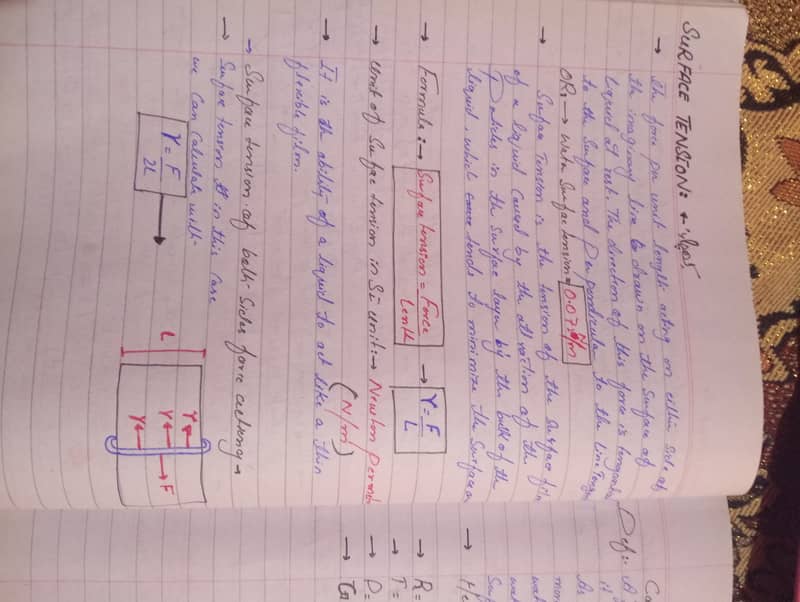 SURFACE TENSION:
→ The force per unit length acting on either side of
the imaginary line to drawn on the surface of
liquid at rest. The direction of this force is
to the surface and Perpendicular to the line
OR: → Water Surface tension = 0.072 N/m
→ Surface Tension is the tension of the surface film
of a liquid caused by the attraction of the
Particles in the surface layer by the bulk of the
liquid, which tends to minimize the surface
→ Formula: → Surface tension = Force
Lenth
→ γ = F
L
→ Unit of Surface tension in Si unit: → Newton per
(N/m)
→ It is the ability of a liquid to act like a thin
flexible film.
→ Surface tension of both Sides force acting →
→ Surface tension in this case
we can calculate with
γ = F
2L
L
γ
γ
γ
F
Def:
→ R =
→ T =
→ P =
→